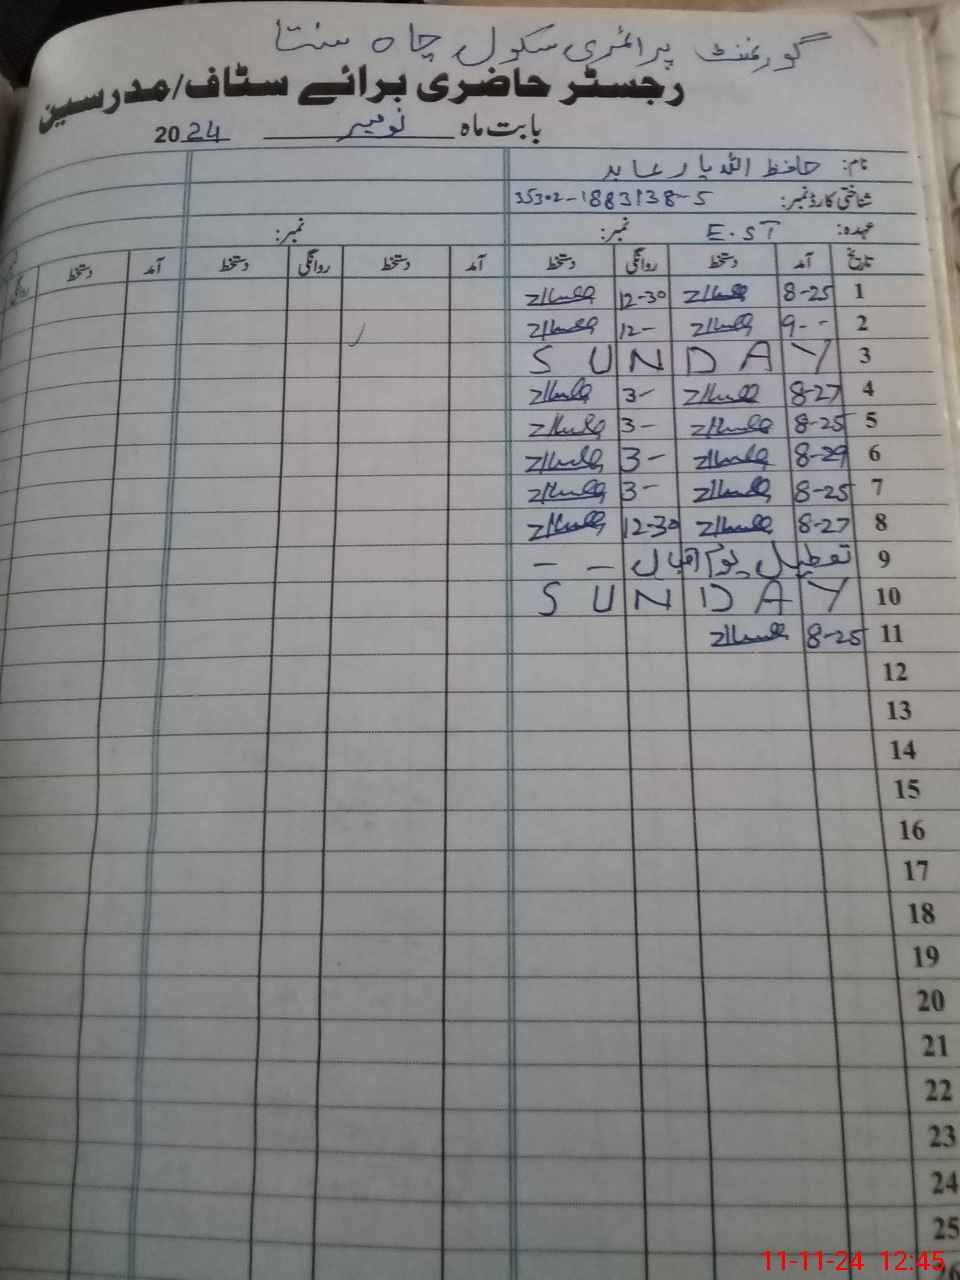 گورنمنٹ پرائمری سکول چاہ سنتا
رجسٹر حاضری برائے سٹاف/مدرسین
بابت ماہ نومبر 2024
نام: حافظ اللہ یار عابد
شناختی کارڈ نمبر: 35302-1883138-5
عہدہ: E.ST نمبر: نمبر:
تاریخ آمد دستخط روانگی دستخط آمد دستخط روانگی دستخط آمد دستخط
1 8-25 12-30
2 9-- 12-
3 SUNDAY
4 8-27 3-
5 8-25 3-
6 8-29 3-
7 8-25 3-
8 8-27 12-30
9 تعطیل یوم اقبال - -
10 SUNDAY
11 8-25
12
13
14
15
16
17
18
19
20
21
22
23
24
25
26
11-11-24 12:45